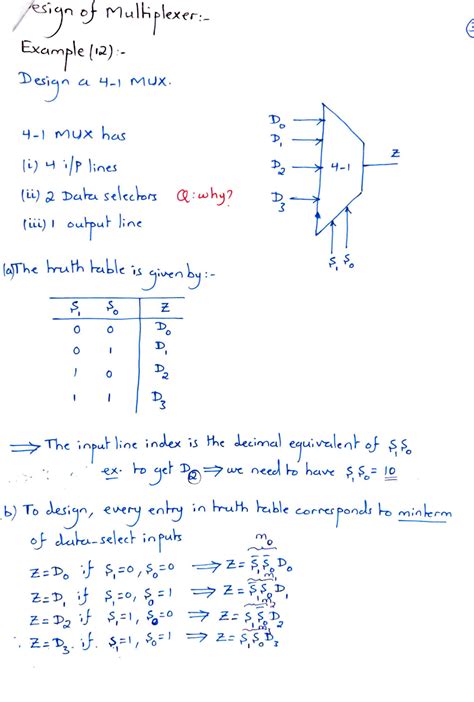 Design of Multiplexer:-
Example (12):-
Design a 4-1 MUX.
4-1 MUX has
(i) 4 i/p lines
(ii) 2 Data selectors Q: why?
(iii) 1 output line
D₀
D₁
D₂
D₃
4-1
Z
S₁ S₀
(a) The truth table is given by:-
S₁ S₀ Z
0 0 D₀
0 1 D₁
1 0 D₂
1 1 D₃
⇒ The input line index is the decimal equivalent of S₁S₀
ex. to get D② ⇒ we need to have S₁S₀ = 10
b) To design, every entry in truth table corresponds to minterm
of data-select inputs
m₀
Z=D₀ if S₁=0, S₀=0 ⇒ Z = S̅₁S̅₀D₀
m₁
Z=D₁ if S₁=0, S₀=1 ⇒ Z = S̅₁S₀D₁
m₂
Z=D₂ if S₁=1, S₀=0 ⇒ Z = S₁S̅₀D₂
Z=D₃ if S₁=1, S₀=1 ⇒ Z = S₁S₀D₃